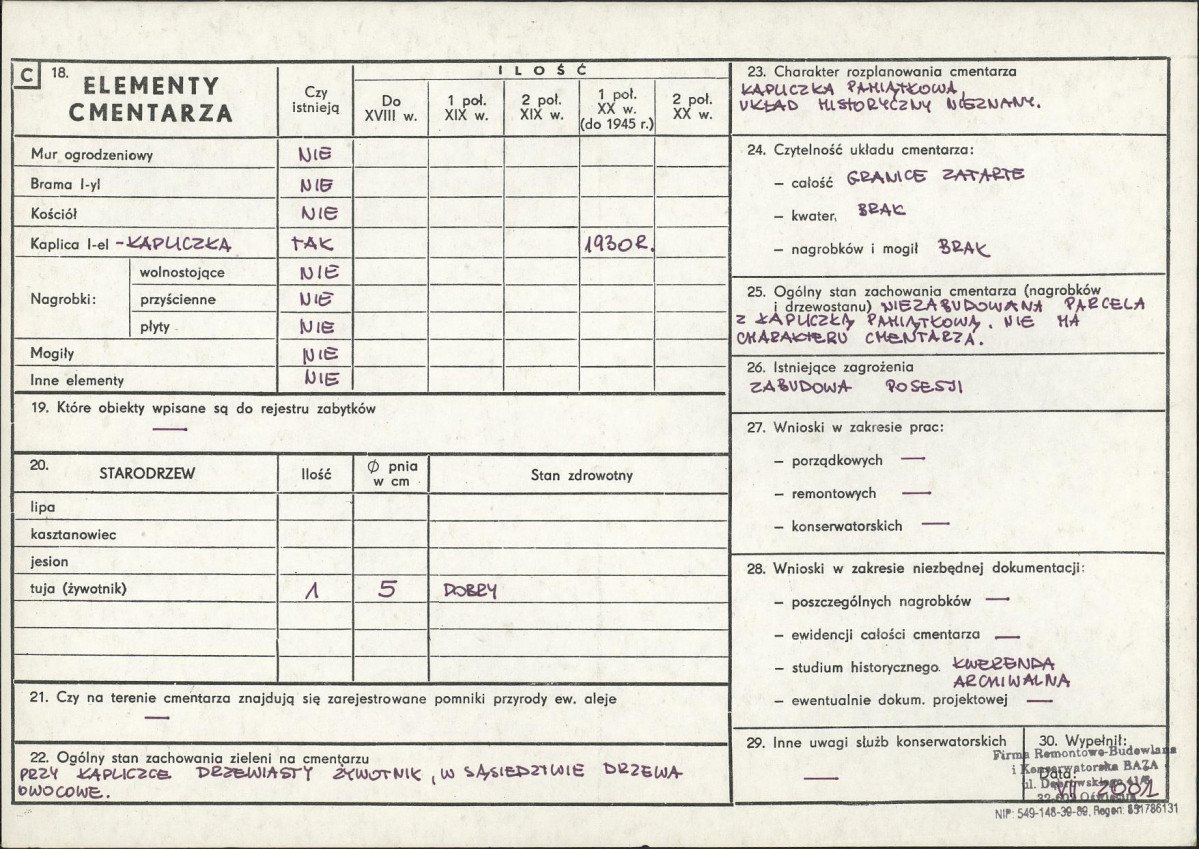 C 18. ELEMENTY CMENTARZA
Czy istnieją
ILOŚĆ
Do XVIII w.
1 poł. XIX w.
2 poł. XIX w.
1 poł. XX w. (do 1945 r.)
2 poł. XX w.
Mur ogrodzeniowy NIE
Brama I-yl NIE
Kościół NIE
Kaplica I-el - KAPLICZKA TAK 1930 R.
Nagrobki:
wolnostojące NIE
przyścienne NIE
płyty NIE
Mogiły NIE
Inne elementy NIE
19. Które obiekty wpisane są do rejestru zabytków
—
20. STARODRZEW Ilość Ø pnia w cm Stan zdrowotny
lipa
kasztanowiec
jesion
tuja (żywotnik) 1 5 DOBRY
21. Czy na terenie cmentarza znajdują się zarejestrowane pomniki przyrody ew. aleje
—
22. Ogólny stan zachowania zieleni na cmentarzu
PRZY KAPLICZCE DRZEWIASTY ŻYWOTNIK, W SĄSIEDZTWIE DRZEWA
OWOCOWE.
23. Charakter rozplanowania cmentarza
KAPLICZKA PAMIĄTKOWA,
UKŁAD HISTORYCZNY NIEZNANY.
24. Czytelność układu cmentarza:
— całość GRANICE ZATARTE
— kwater, BRAK
— nagrobków i mogił BRAK
25. Ogólny stan zachowania cmentarza (nagrobków
i drzewostanu) NIEZABUDOWANA PARCELA
Z KAPLICZKĄ PAMIĄTKOWĄ. NIE MA
CHARAKTERU CMENTARZA.
26. Istniejące zagrożenia
ZABUDOWA POSESJI
27. Wnioski w zakresie prac:
— porządkowych —
— remontowych —
— konserwatorskich —
28. Wnioski w zakresie niezbędnej dokumentacji:
— poszczególnych nagrobków —
— ewidencji całości cmentarza —
— studium historycznego KWERENDA
ARCHIWALNA
— ewentualnie dokum. projektowej —
29. Inne uwagi służb konserwatorskich
—
30. Wypełnił:
Firma Remontowo-Budowlana
i Konserwatorska BAZA
Data: VII 2001
ul. Dąbrowskiego
NIP: 549-148-39-89, Regon: